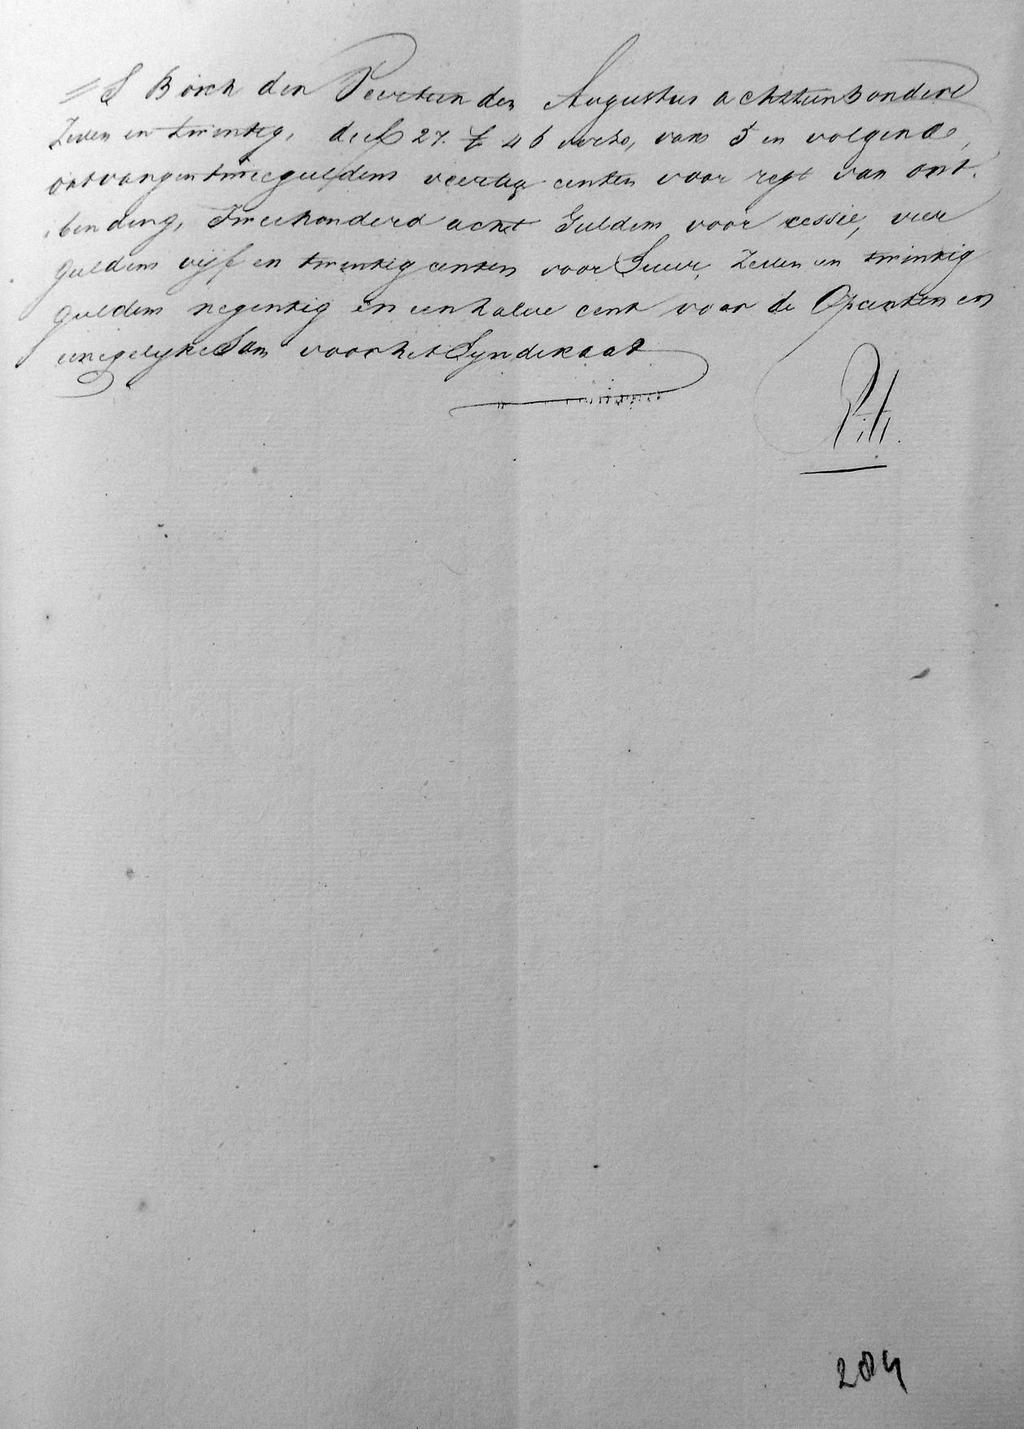 S Bosch den Veertienden Augustus achttienhonderd
Zeven en twintig, deel 27. f 46 verso, vak 5 en volgende,
ontvangen twee guldens veertig centen voor regt van ont-
binding, Tweehonderd acht Guldens voor cessie, vier
guldens vijf en twintig centen voor Zeven en twintig
guldens negentig en een halve cent voor de Opcenten en
eenegelyke Som voor het Syndikaat
204